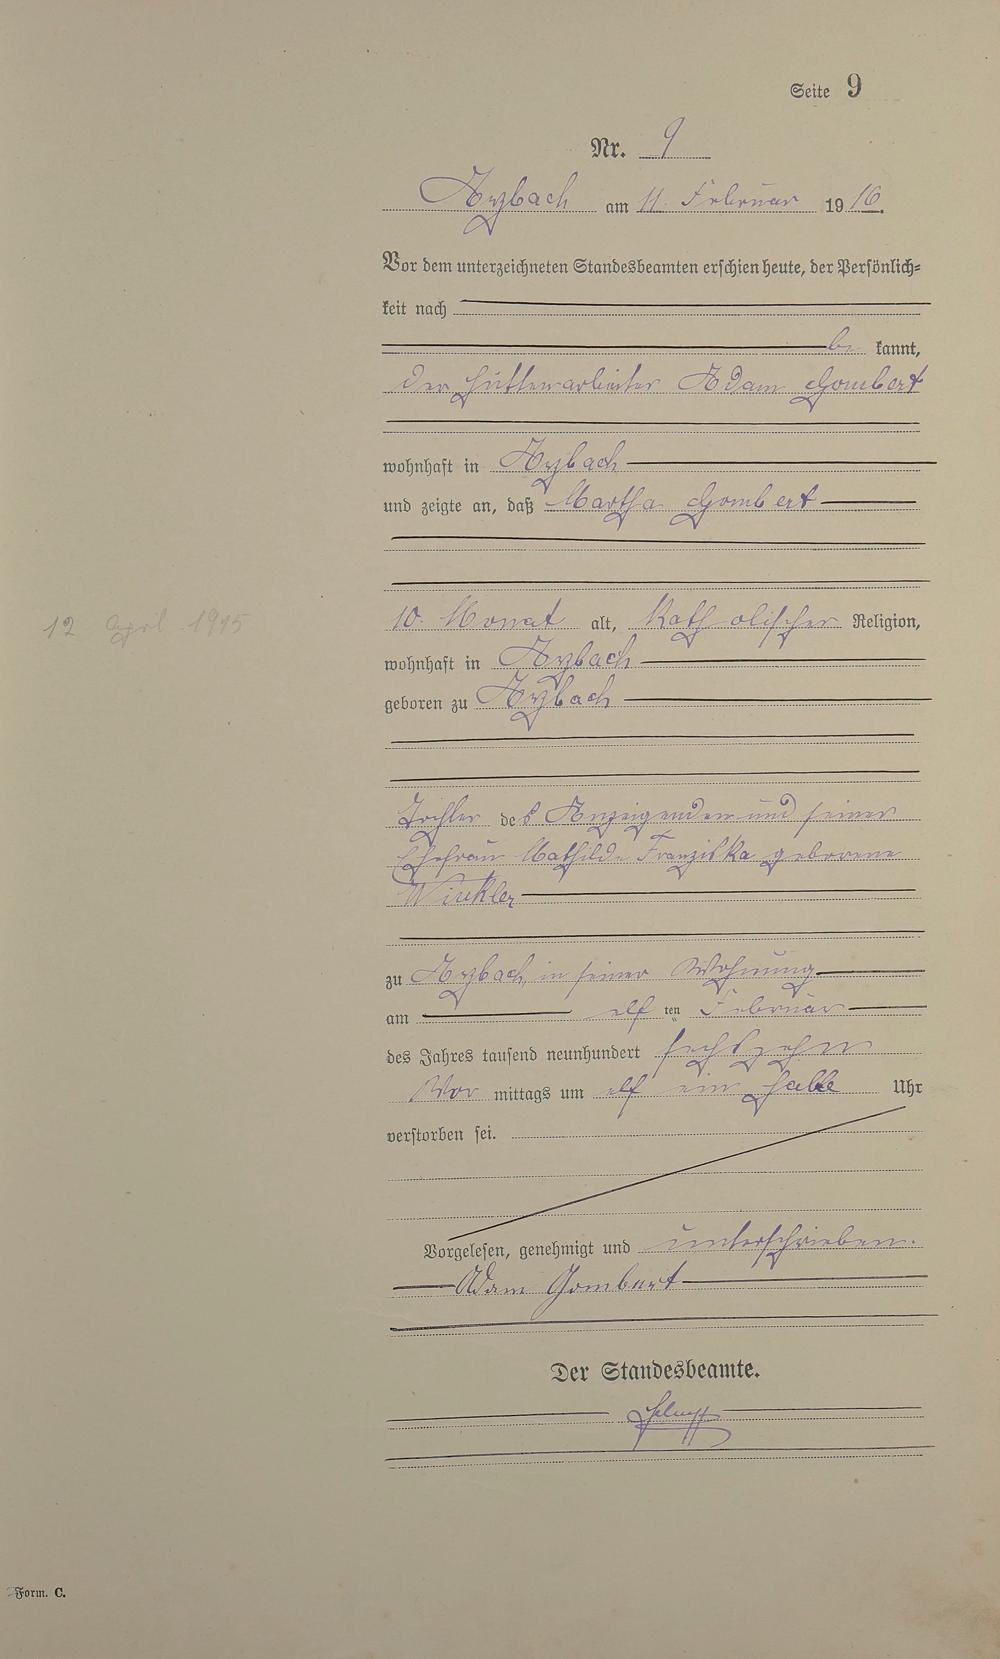 Seite 9
Nr. 9
Arzbach am 11. Februar 1916.
Vor dem unterzeichneten Standesbeamten erschien heute, der Persönlich=
keit nach
be kannt,
der Hüttenarbeiter Adam Gombert
wohnhaft in Arzbach
und zeigte an, daß Martha Gombert
12 April 1915
10. Monat alt, katholischer Religion,
wohnhaft in Arzbach
geboren zu Arzbach
Tochter des Anzeigenden und seiner
Ehefrau Mathilde Franziska geborene
Winkler
zu Arzbach, in seiner Wohnung
am elf ten Februar
des Jahres tausend neunhundert sechszehn
Vor mittags um elf ein halbe Uhr
verstorben sei.
Vorgelesen, genehmigt und unterschrieben.
Adam Gombert
Der Standesbeamte.
Form. C.